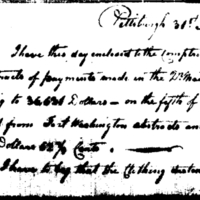 Pittsburgh 31st
I have this day enclosed to the Comptro
tracts of payments made in the
g to 36,631 Dollars - on the fifth of
d from Fort Washington abstracts an
Dollars 62 1/2 Cents.
I have to beg that the Clothing